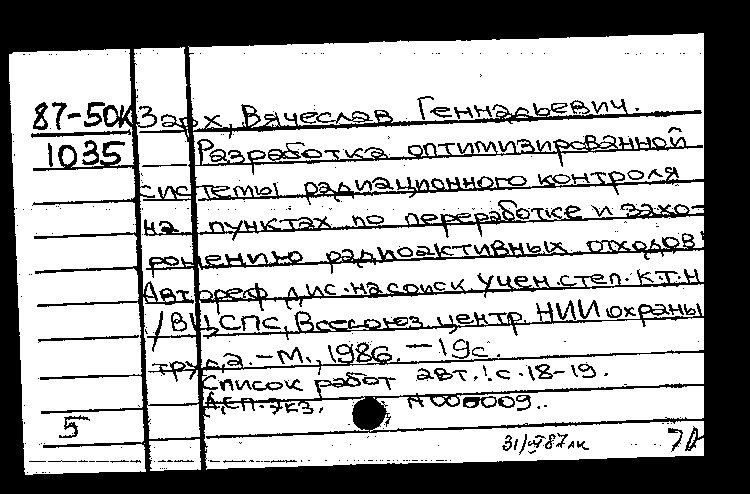 87-50К Зарх, Вячеслав Геннадьевич.
1035 Разработка оптимизированной
системы радиационного контроля
на пунктах по переработке и захо-
ронению радиоактивных отходов:
Автореф. дис. на соиск. учен. степ. к.т.н
/ВЦСПС, Всесоюз. центр. НИИ охраны
труда. - М., 1986. - 19с.
Список работ авт.: с. 18-19.
Деп. экз. А 000009..
5